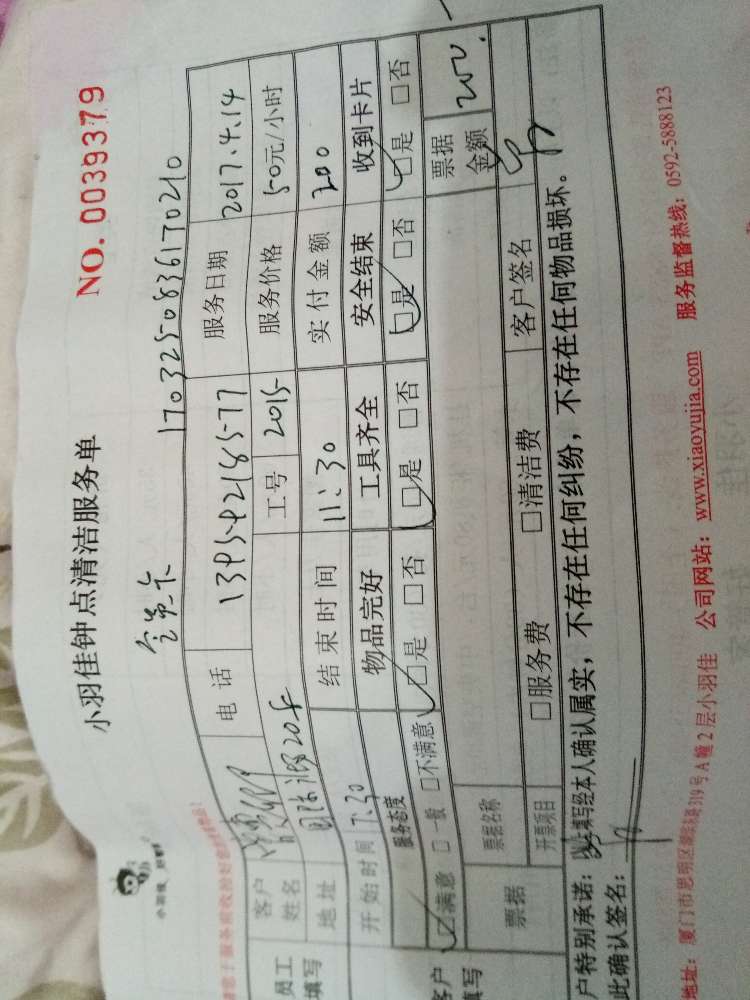 小羽佳钟点清洁服务单
NO. 0039379
1703250836170210
员工填写 客户姓名 电话 服务日期 2017.4.14
地址 工号 2015 服务价格 50元/小时
开始时间 7:30 结束时间 11:30 实付金额 200
服务态度 物品完好 工具齐全 安全结束 收到卡片
☑满意 □一般 □不满意 ☑是 □否 ☑是 □否 ☑是 □否 ☑是 □否
票据 票据名称 票据金额 200.
开票项目 □服务费 □清洁费 客户签名
户特别承诺：以上填写经本人确认属实，不存在任何纠纷，不存在任何物品损坏。
此确认签名：
地址：厦门市思明区湖滨东路319号A幢2层小羽佳 公司网站：www.xiaoyujia.com 服务监督热线：0592-5888123